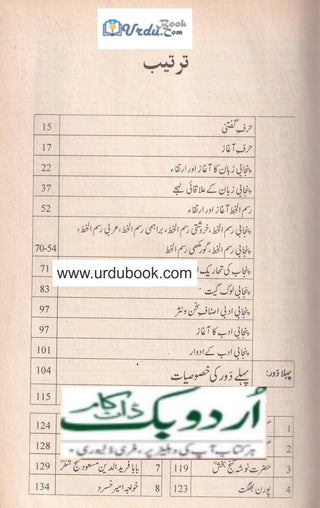 Urdu Book
.Com
ترتیب
حرفِ گفتنی 15
حرفِ آغاز 17
پنجابی زبان کا آغاز اور ارتقاء 22
پنجابی زبان کے علاقائی لہجے 37
رسم الخط آغاز اور ارتقاء 52
پنجابی رسم الخط، خروشٹی رسم الخط، براہمی رسم الخط، عربی رسم الخط،
پنجابی رسم الخط، گورمکھی رسم الخط 54-70
پنجاب کی تحاریک 71
www.urdubook.com
پنجابی لوک گیت 83
پنجابی ادبی اصنافِ سخن و نثر 97
پنجابی ادب کا آغاز 97
پنجابی ادب کے ادوار 101
پہلا دور: پہلے دور کی خصوصیات 104
115
اردو بک ڈاٹ کام
ہر کتاب آپ کی دہلیز پر، فری ڈلیوری
1 124
2 128
3 حضرت نوشہ گنج بخشؒ 119 7 بابا فرید الدین مسعود گنج شکرؒ 129
4 پورن بھگت 123 8 خواجہ امیر خسرو 134